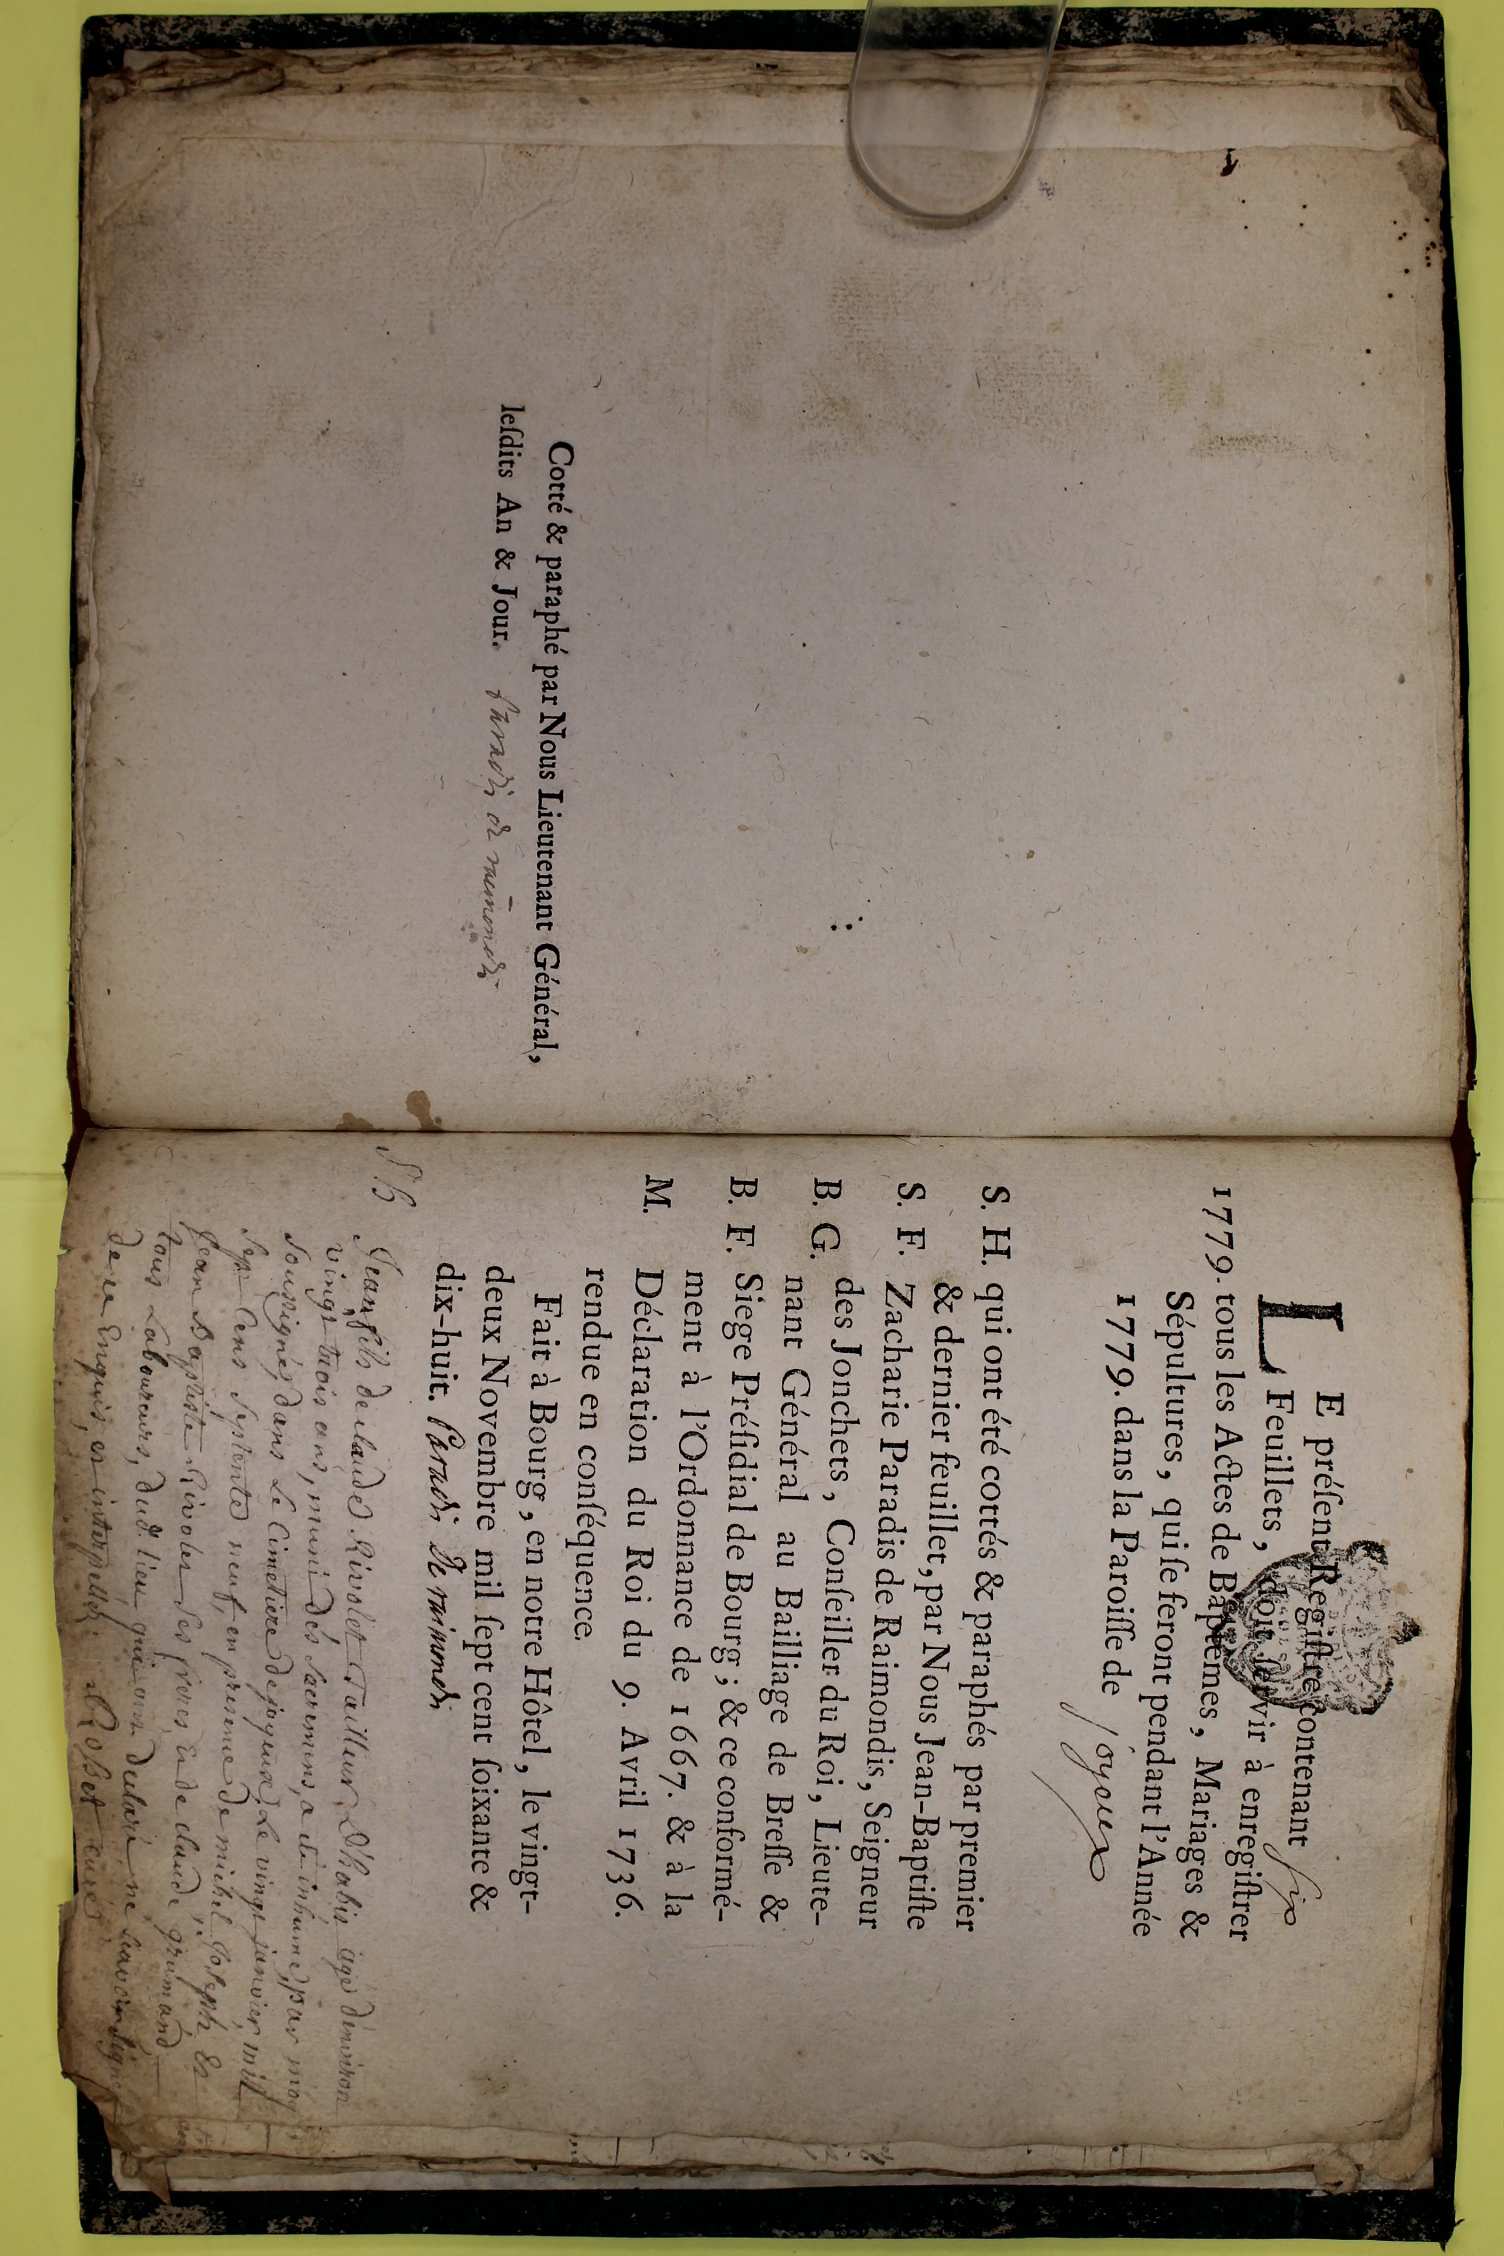 Cotté & paraphé par Nous Lieutenant Général,
leſdits An & Jour. Paradis de raimondis
LE préſent Regiſtre contenant six
Feuillets, doit ſervir à enregiſtrer
1779. tous les Actes de Baptêmes, Mariages &
Sépultures, qui ſe feront pendant l'Année
1779. dans la Paroiſſe de joyeux
S. H. qui ont été cottés & paraphés par premier
& dernier feuillet, par Nous Jean-Baptiſte
S. F. Zacharie Paradis de Raimondis, Seigneur
des Jonchets, Conſeiller du Roi, Lieute-
B. G. nant Général au Bailliage de Breſſe &
B. F. Siege Préſidial de Bourg; & ce conformé-
ment à l'Ordonnance de 1667. & à la
M. Déclaration du Roi du 9. Avril 1736.
rendue en conſéquence.
Fait à Bourg, en notre Hôtel, le vingt-
deux Novembre mil ſept cent ſoixante &
dix-huit. Paradis De raimondis
S h
Jean fils de claude Rivolet Tailleur D'habis agé d'environ
vingt trois ans, muni des sacremens, a été inhumé par moy
soussigné dans Le Cimetiere de joyeux Le vingt janvier mil
sept Cens septente neuf, en presence de michel, Joseph Et
Jean Baptiste Rivolet ses freres et de claude grumand
tous Laboureurs, dud. lieu qui ont declaré ne savoir signer
de ce Enquis et interpellés. Rosset curé